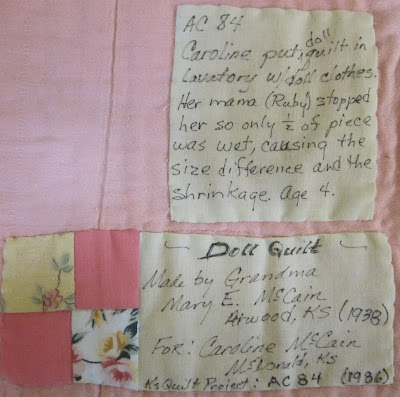 AC 84
Caroline put doll quilt in
lavatory w/doll clothes.
Her mama (Ruby) stopped
her so only ½ of piece
was wet, causing the
size difference and the
shrinkage. Age 4.
Doll Quilt
Made by Grandma
Mary E. McCain
Atwood, KS (1938)
FOR: Caroline McCain
McDonald, Ks
Ks Quilt Project: AC 84 (1986)